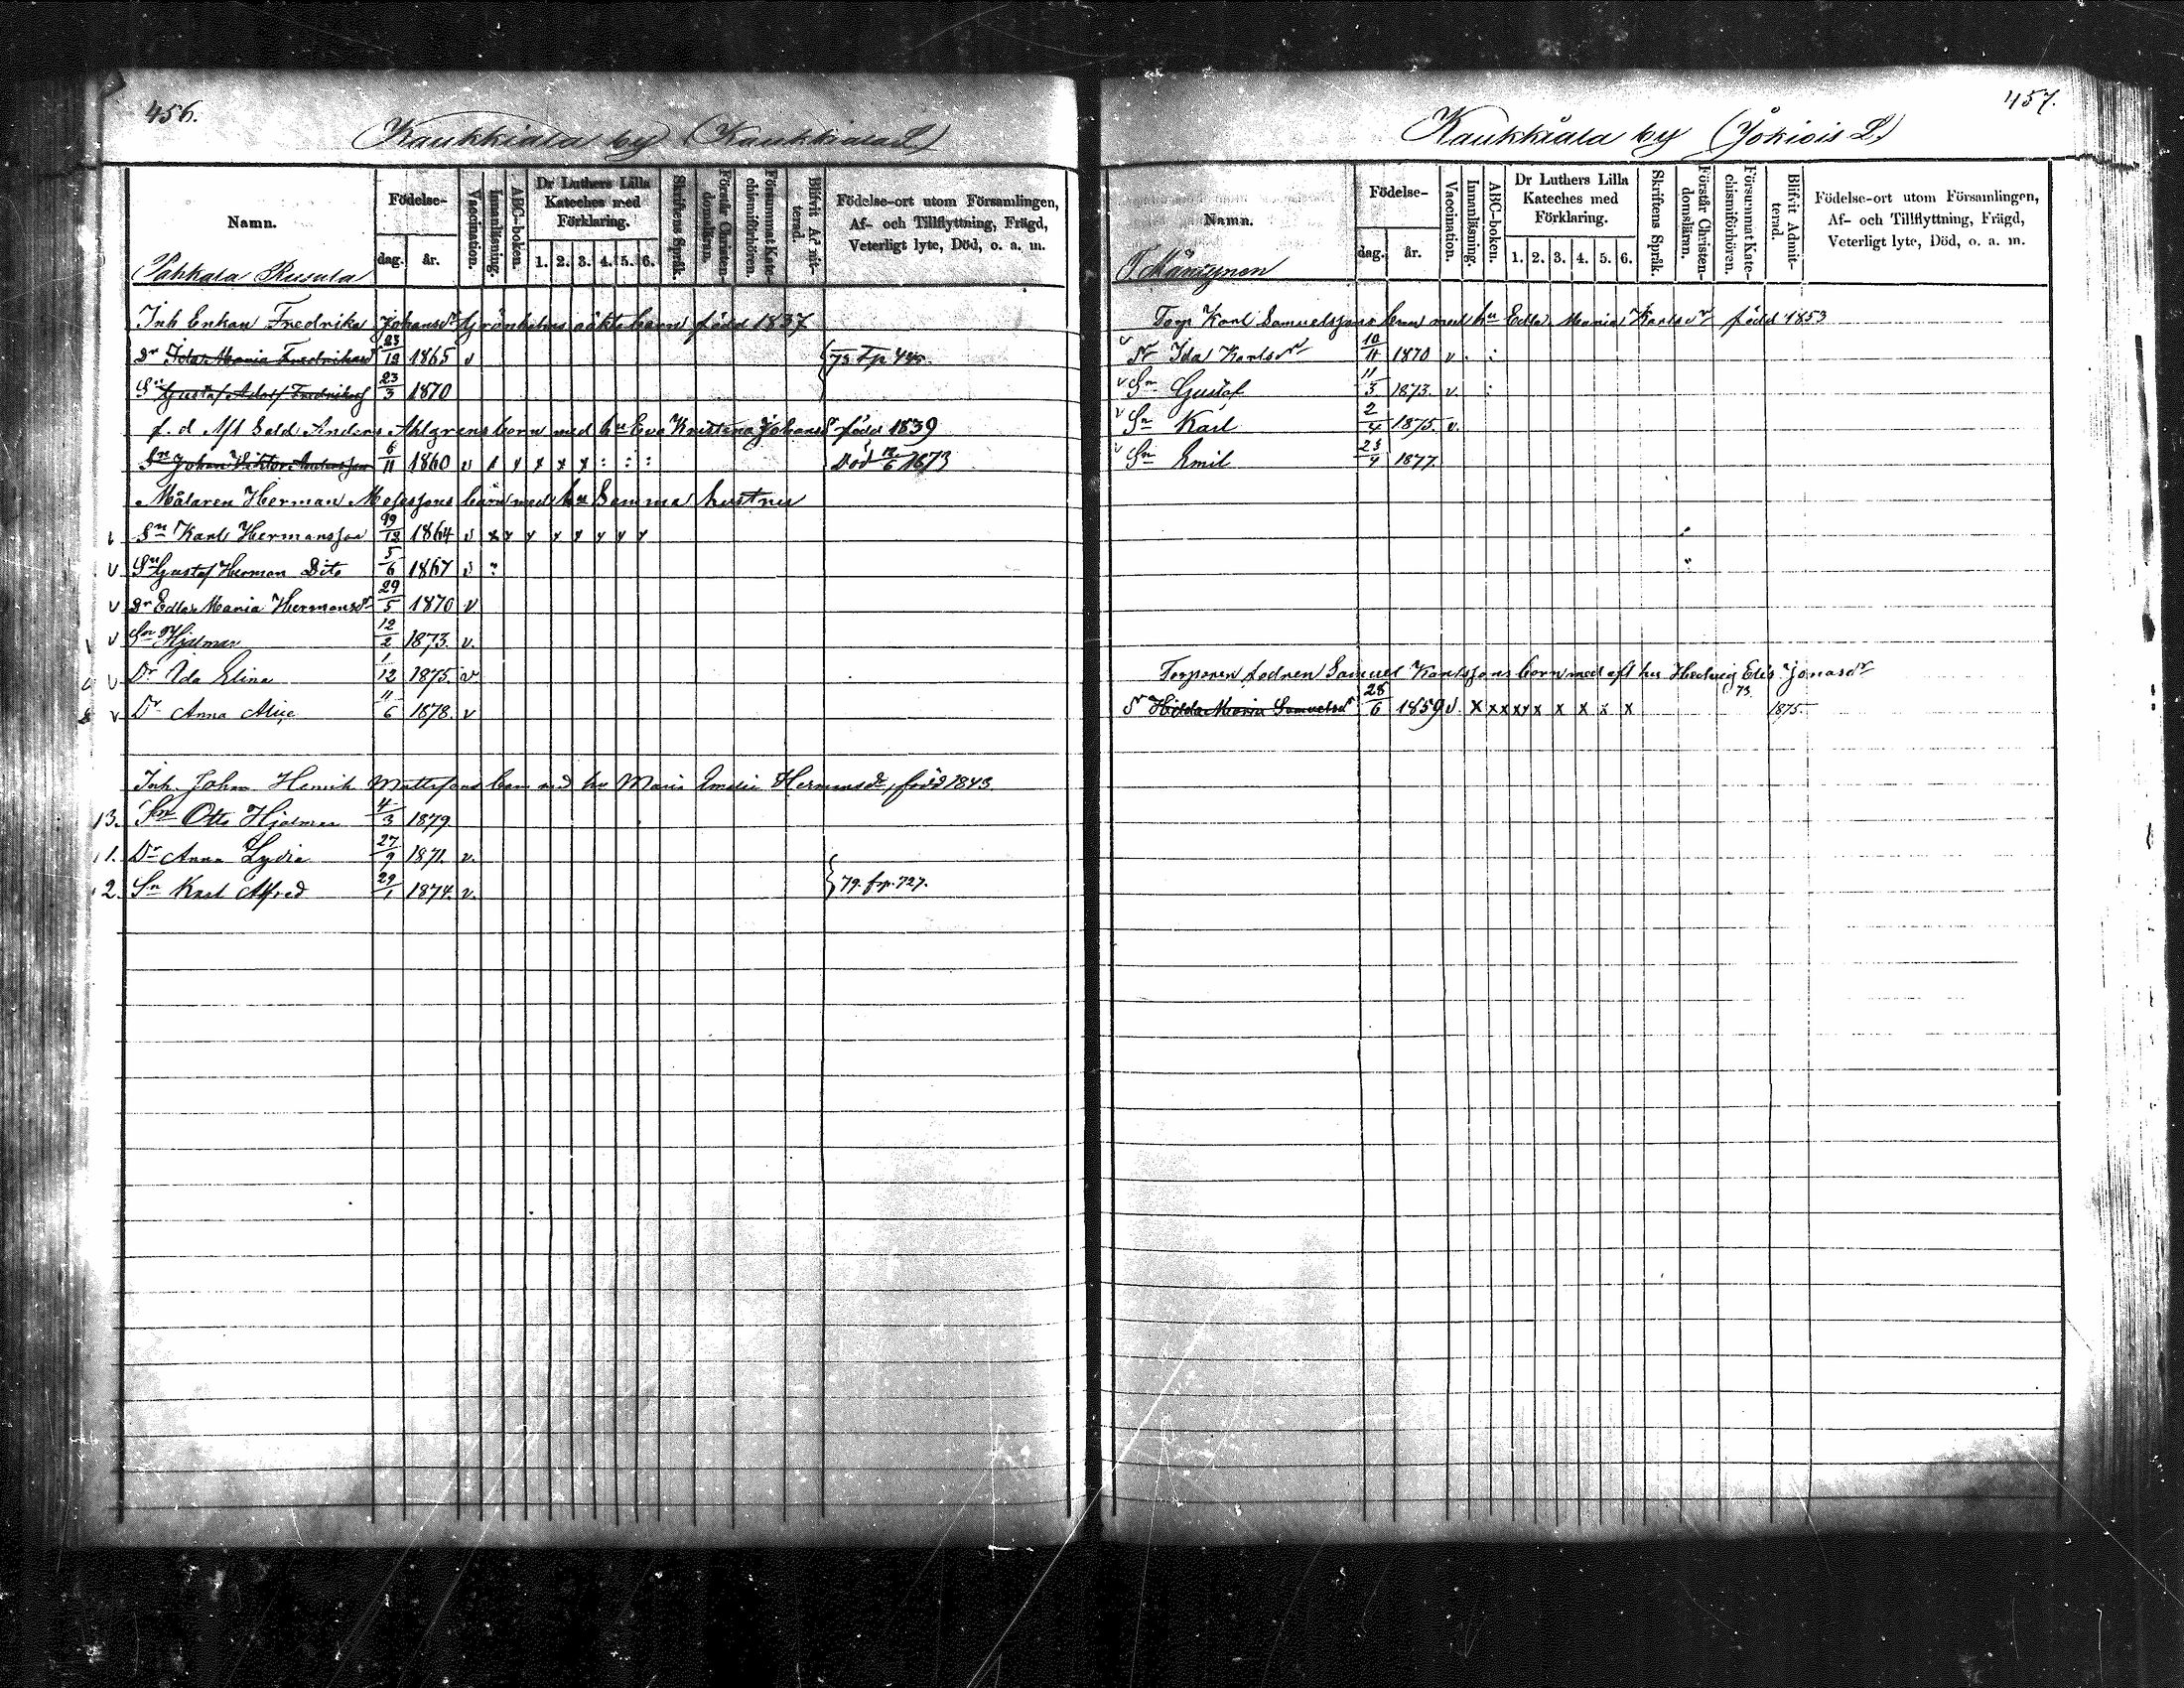 456.
Kaukkiala by (Kaukkiala L)
Namn.
Födelse-
dag.
år.
Vaccination.
Innanläsning.
ABC-boken.
Dr Luthers Lilla Kateches med Förklaring.
1. 2. 3. 4. 5. 6.
Skriftens Språk.
Förstår Christen-domsläran.
Försummat Kate-chismiförhören.
Blifvit Admit-terad.
Födelse-ort utom Församlingen,
Af- och Tillflyttning, Frägd,
Veterligt lyte, Död, o. a. m.
Pahkala Rusula
Inh Enkan Fredrika Johansdr Grönholms oäkta barn född 1837
Dr Ida Maria Fredriksdr 23/12 1865 v
Sn Gustaf Adolf Fredriksf 23/3 1870
f. d Afsk Sold Anders Ahlgrens barn med hu Eva Kristina Johansd född 1839
Sn Johan Viktor Andersson 6/11 1860 v x x x x x : : : Död 12/6 1873
Målaren Herman Mosessons barn med hu Semma hustru
Sn Karl Hermansson 1864 v x x x x x x x x
v Sn Gustaf Herman Dito 5/6 1867 v :
v Dr Edla Maria Hermansdr 29/5 1870 v
v Sn Hjalmar 12/2 1873. v.
v Dr Ida Elina 1/12 1875. v
v Dr Anna Alice 11/6 1878. v
Inh. Johan Henrik Mattssons barn med hu Maria Emilia Hermansdr, född 1843.
13. Sn Otto Hjalmar 4/3 1879.
11. Dr Anna Lydia 27/9 1871. v.
12. Sn Karl Alfred 29/1 1874. v. 79. fr p. 727.
457.
Kaukkiala by (Jokiois L)
Namn.
Födelse-
dag.
år.
Vaccination.
Innanläsning.
ABC-boken.
Dr Luthers Lilla Kateches med Förklaring.
1. 2. 3. 4. 5. 6.
Skriftens Språk.
Förstår Christen-domsläran.
Försummat Kate-chismiförhören.
Blifvit Admit-terad.
Födelse-ort utom Församlingen,
Af- och Tillflyttning, Frägd,
Veterligt lyte, Död, o. a. m.
T Mäntynen
Torp Karl Samuelssons barn med hu Edla Maria Karlsdr född 1853
v Dr Ida Karlsdr 10/11 1870 v. :
v Sn Gustaf 11/3 1873. v. :
v Sn Karl 2/4 1875. v.
v Sn Emil 23/4 1877.
Torparen fadren Samuel Karlssons barn med afl hu Hedvig Elis. Jonasdr
Dr Hilda Maria Samuelsdr 28/6 1859 v. x x x x x x x x x 73. 1875.